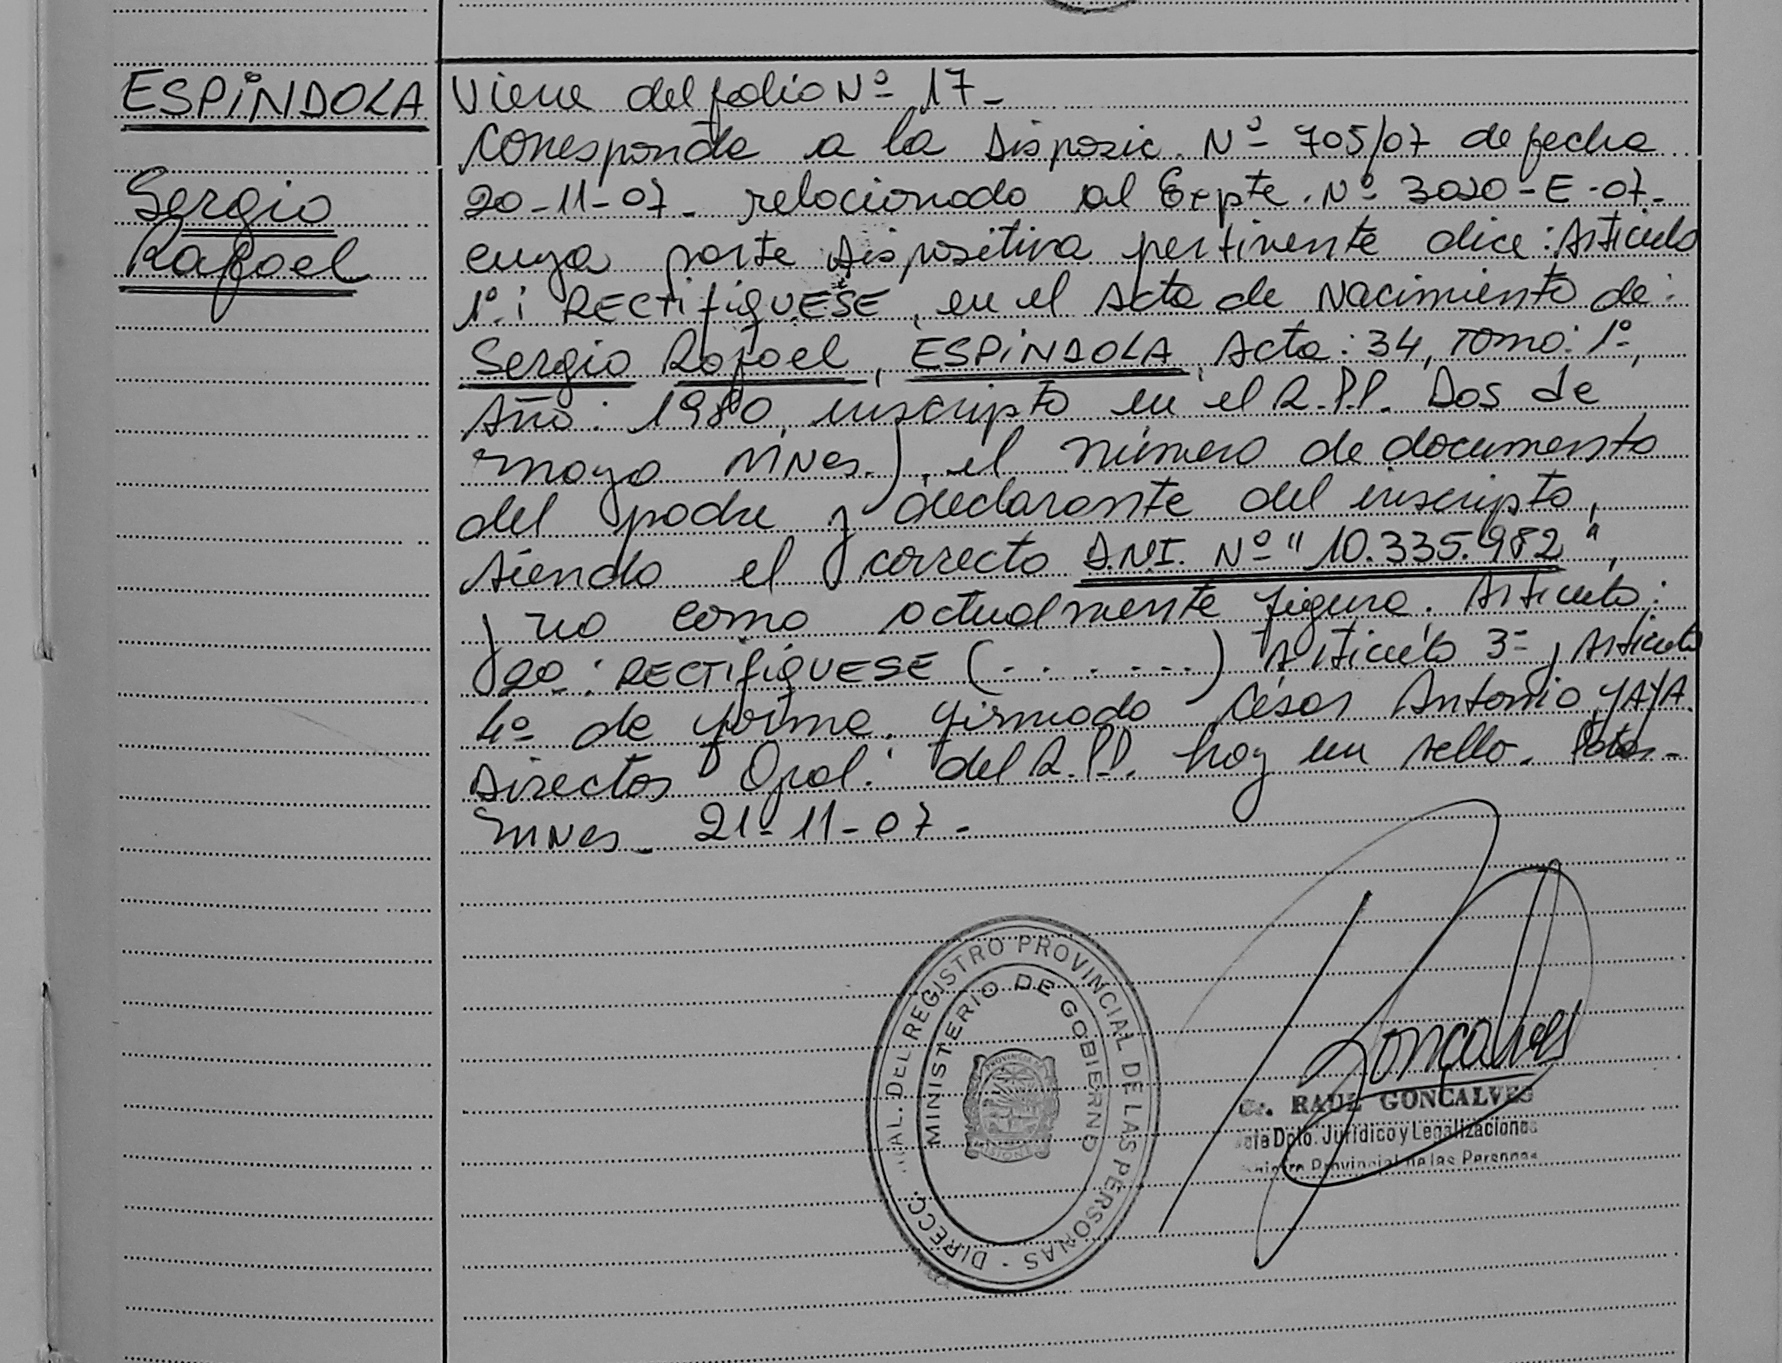 ESPÍNDOLA
Sergio
Rafael
Viene del folio Nº 17-
Corresponde a la Disposic. Nº 705/07 de fecha
20-11-07- relacionado al Expte. Nº 3020-E-07-
cuya parte dispositiva pertinente dice: Artículo
1º: RECTIFIQUESE, en el Acta de Nacimiento de:
Sergio Rafael, ESPÍNDOLA, Acta: 34, Tomo: 1º,
Año: 1980, inscripto en el R.P.P. Dos de
mayo MNes.), el número de documento
del padre y declarante del inscripto,
siendo el correcto D.N.I. Nº "10.335.982",
y no como actualmente figura. Artículo:
2º: RECTIFIQUESE (.......) Artículo 3º y Artículo
4º de forma. Firmado César Antonio YAYA.
Director Gral. del R.P.P. hay un sello. Pdas-
MNes- 21-11-07-
DIRECC. GRAL. DEL REGISTRO PROVINCIAL DE LAS PERSONAS -
MINISTERIO DE GOBIERNO
PROVINCIA DE
MISIONES
Goncalves
Sr. RAUL GONCALVES
Jefe Dpto. Jurídico y Legalizaciones
Registro Provincial de las Personas